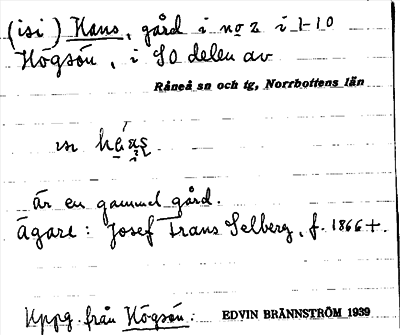 (isi) Hans, gård i no 2 i 1-10
Högsön, i SO delen av
Råneå sn och tg, Norrbottens län
är en gammal gård.
ägare: Josef Frans Selberg, f. 1866 +.
Uppg. från Högsön: EDVIN BRÄNNSTRÖM 1939